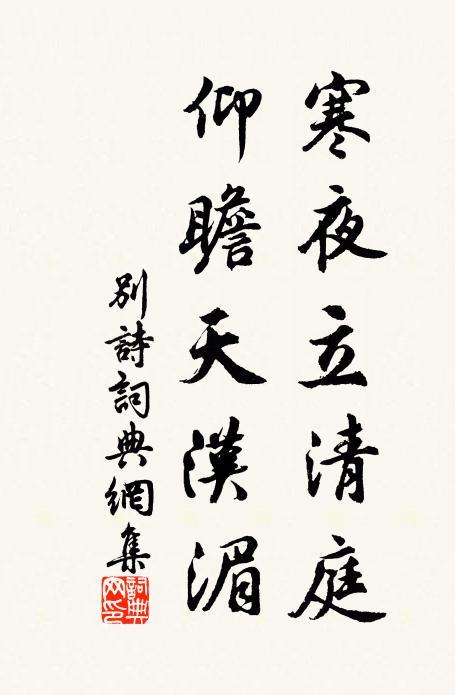 寒夜立清庭
仰瞻天漢湄
別詩詞典網集
詞典
网印